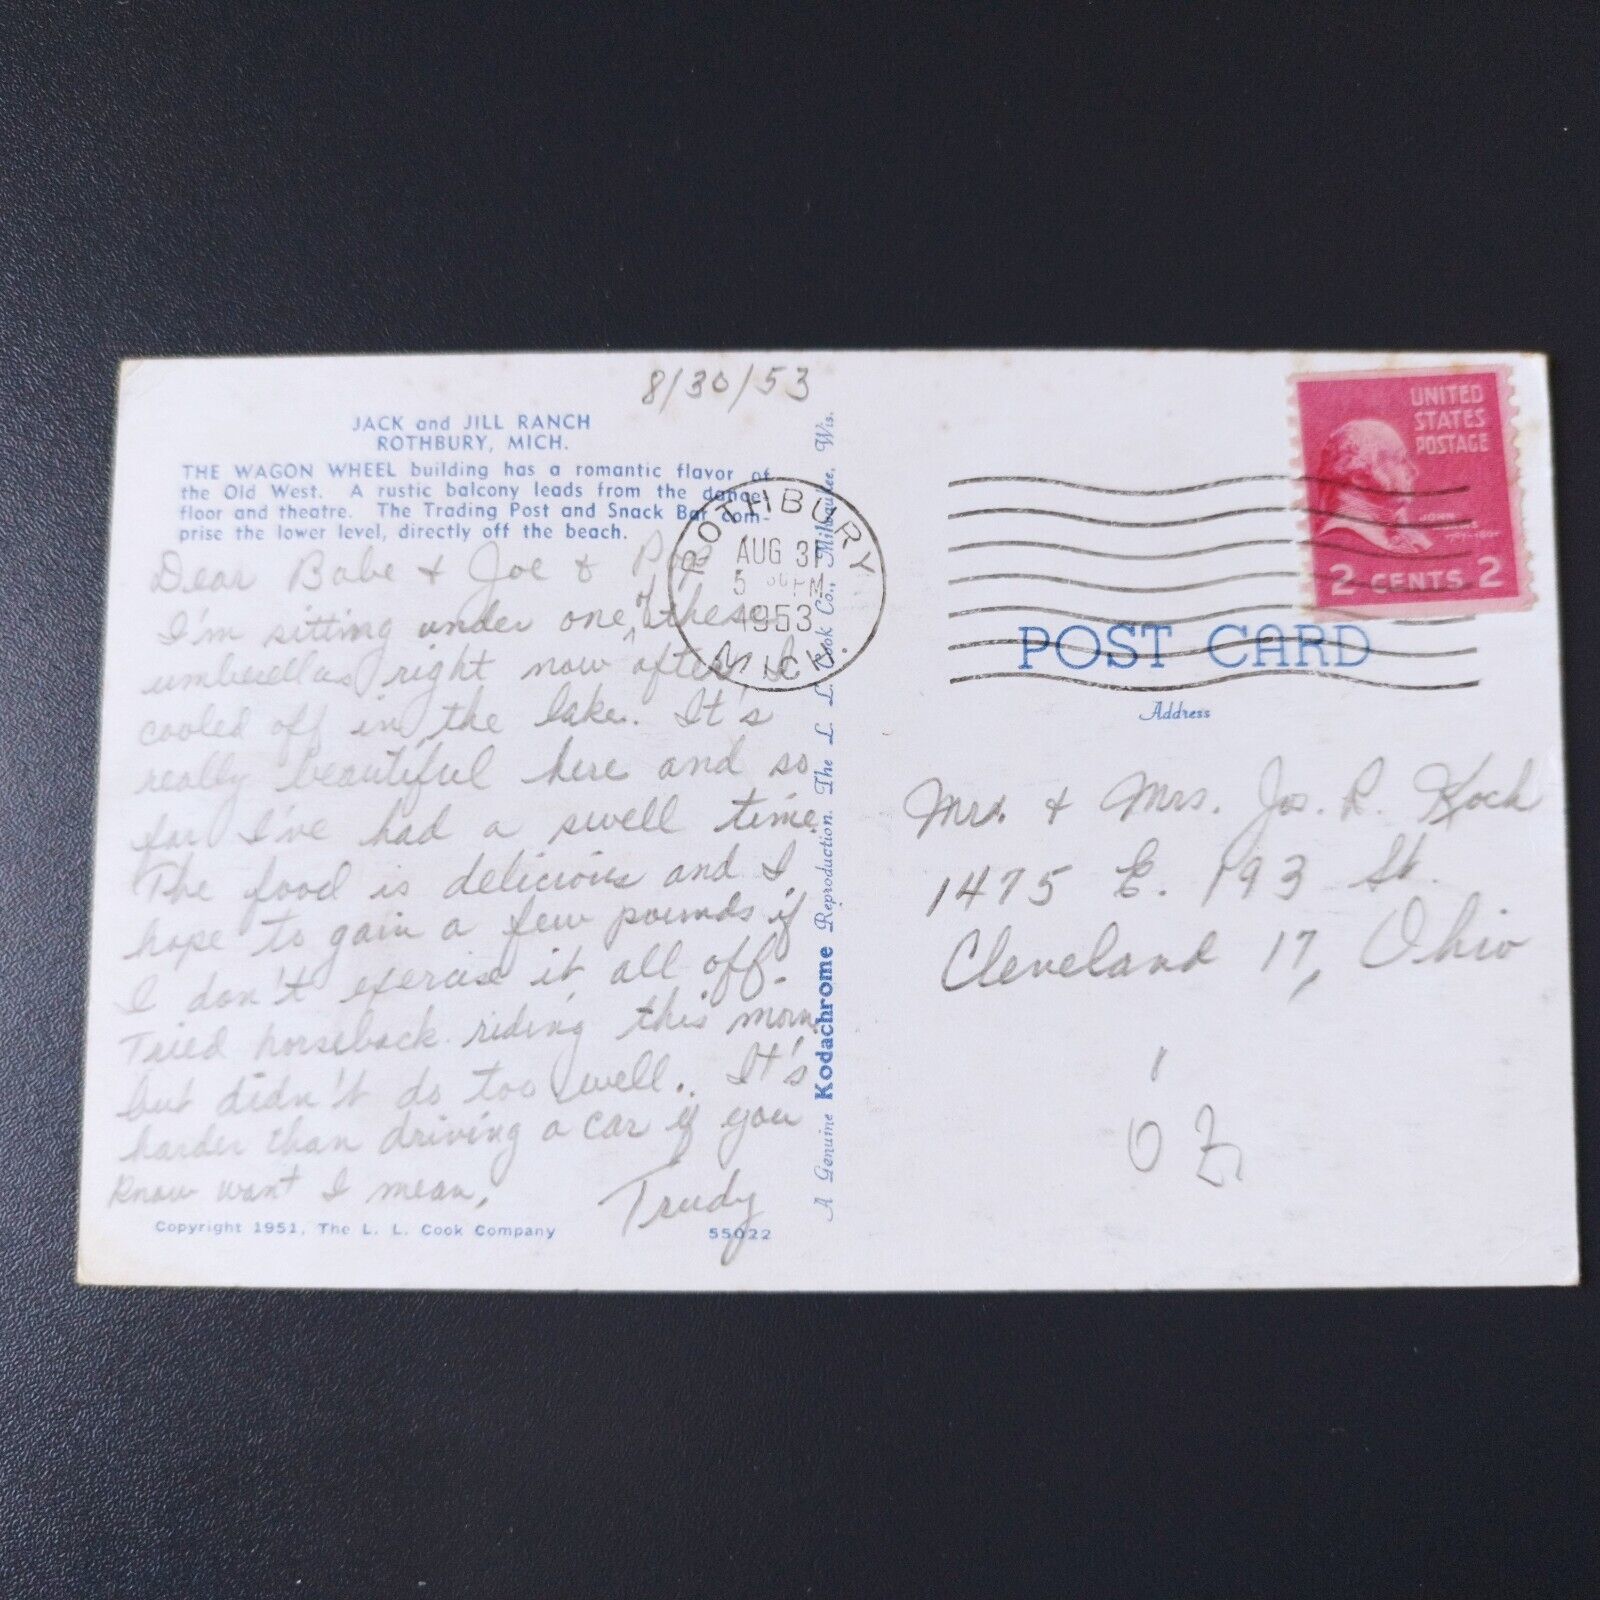 8/30/53
JACK and JILL RANCH
ROTHBURY, MICH.
THE WAGON WHEEL building has a romantic flavor of
the Old West. A rustic balcony leads from the dance
floor and theatre. The Trading Post and Snack Bar com-
prise the lower level, directly off the beach.
Dear Babe & Joe & Pop
I'm sitting under one of these
umbrellas right now after I
cooled off in the lake. It's
really beautiful here and so
far I've had a swell time.
The food is delicious and I
hope to gain a few pounds if
I don't exercise it all off.
Tried horseback riding this morn.
but didn't do too well. It's
harder than driving a car if you
know want I mean.
Trudy
Copyright 1951, The L. L. Cook Company
55022
A Genuine Kodachrome Reproduction. The L. L. Cook Co., Milwaukee, Wis.
ROTHBURY
AUG 31
5 PM
1953
MICH.
UNITED
STATES
POSTAGE
JOHN
2 CENTS 2
POST CARD
Address
Mr. & Mrs. Jos. R. Koch
1475 E. 193 St.
Cleveland 17, Ohio